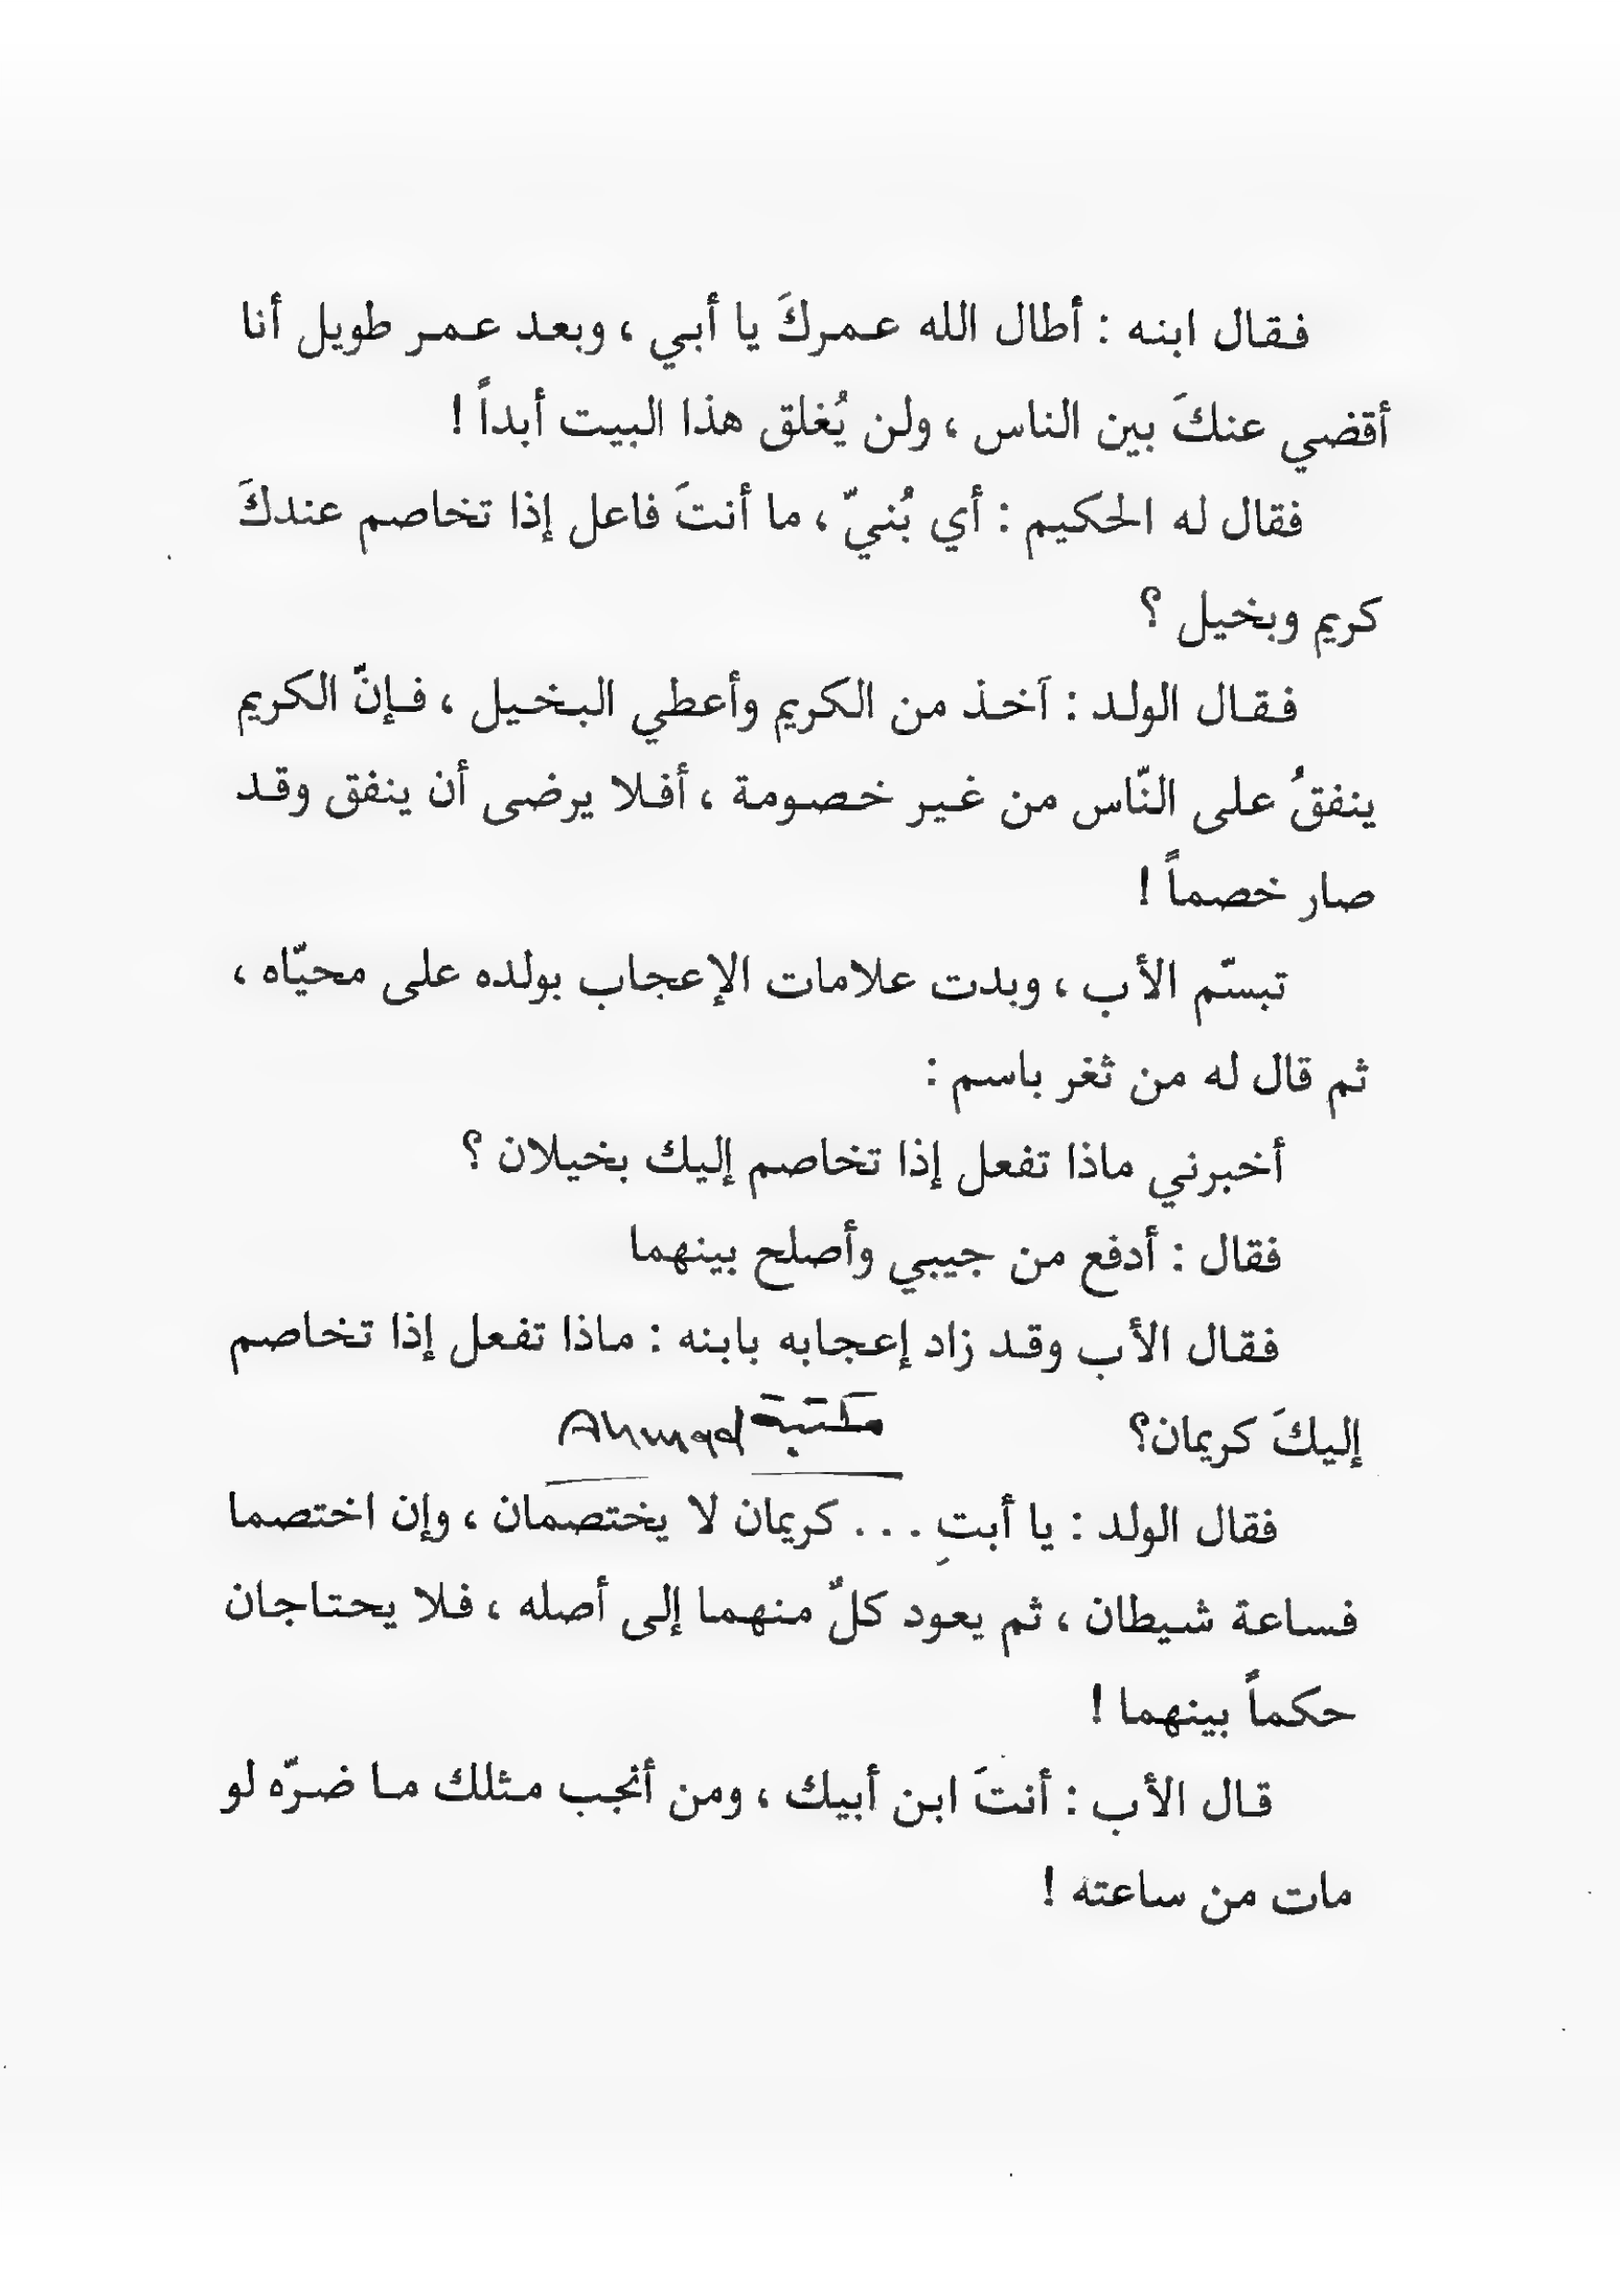 فقال ابنه : أطال الله عمركَ يا أبي ، وبعد عمر طويل أنا
أقضي عنكَ بين الناس ، ولن يُغلق هذا البيت أبداً !
فقال له الحكيم : أي بُنيّ ، ما أنتَ فاعل إذا تخاصم عندكَ
كريم وبخيل ؟
فقال الولد : آخذ من الكريم وأعطي البخيل ، فإنّ الكريم
ينفقُ على النّاس من غير خصومة ، أفلا يرضى أن ينفق وقد
صار خصماً !
تبسّم الأب ، وبدت علامات الإعجاب بولده على محيّاه ،
ثم قال له من ثغر باسم :
أخبرني ماذا تفعل إذا تخاصم إليك بخيلان ؟
فقال : أدفع من جيبي وأصلح بينهما
فقال الأب وقد زاد إعجابه بابنه : ماذا تفعل إذا تخاصم
إليكَ كريمان؟ مكتبة Ahmad
فقال الولد : يا أبتِ . . . كريمان لا يختصمان ، وإن اختصما
فساعة شيطان ، ثم يعود كلٌ منهما إلى أصله ، فلا يحتاجان
حكماً بينهما !
قال الأب : أنتَ ابن أبيك ، ومن أنجب مثلك ما ضرّه لو
مات من ساعته !